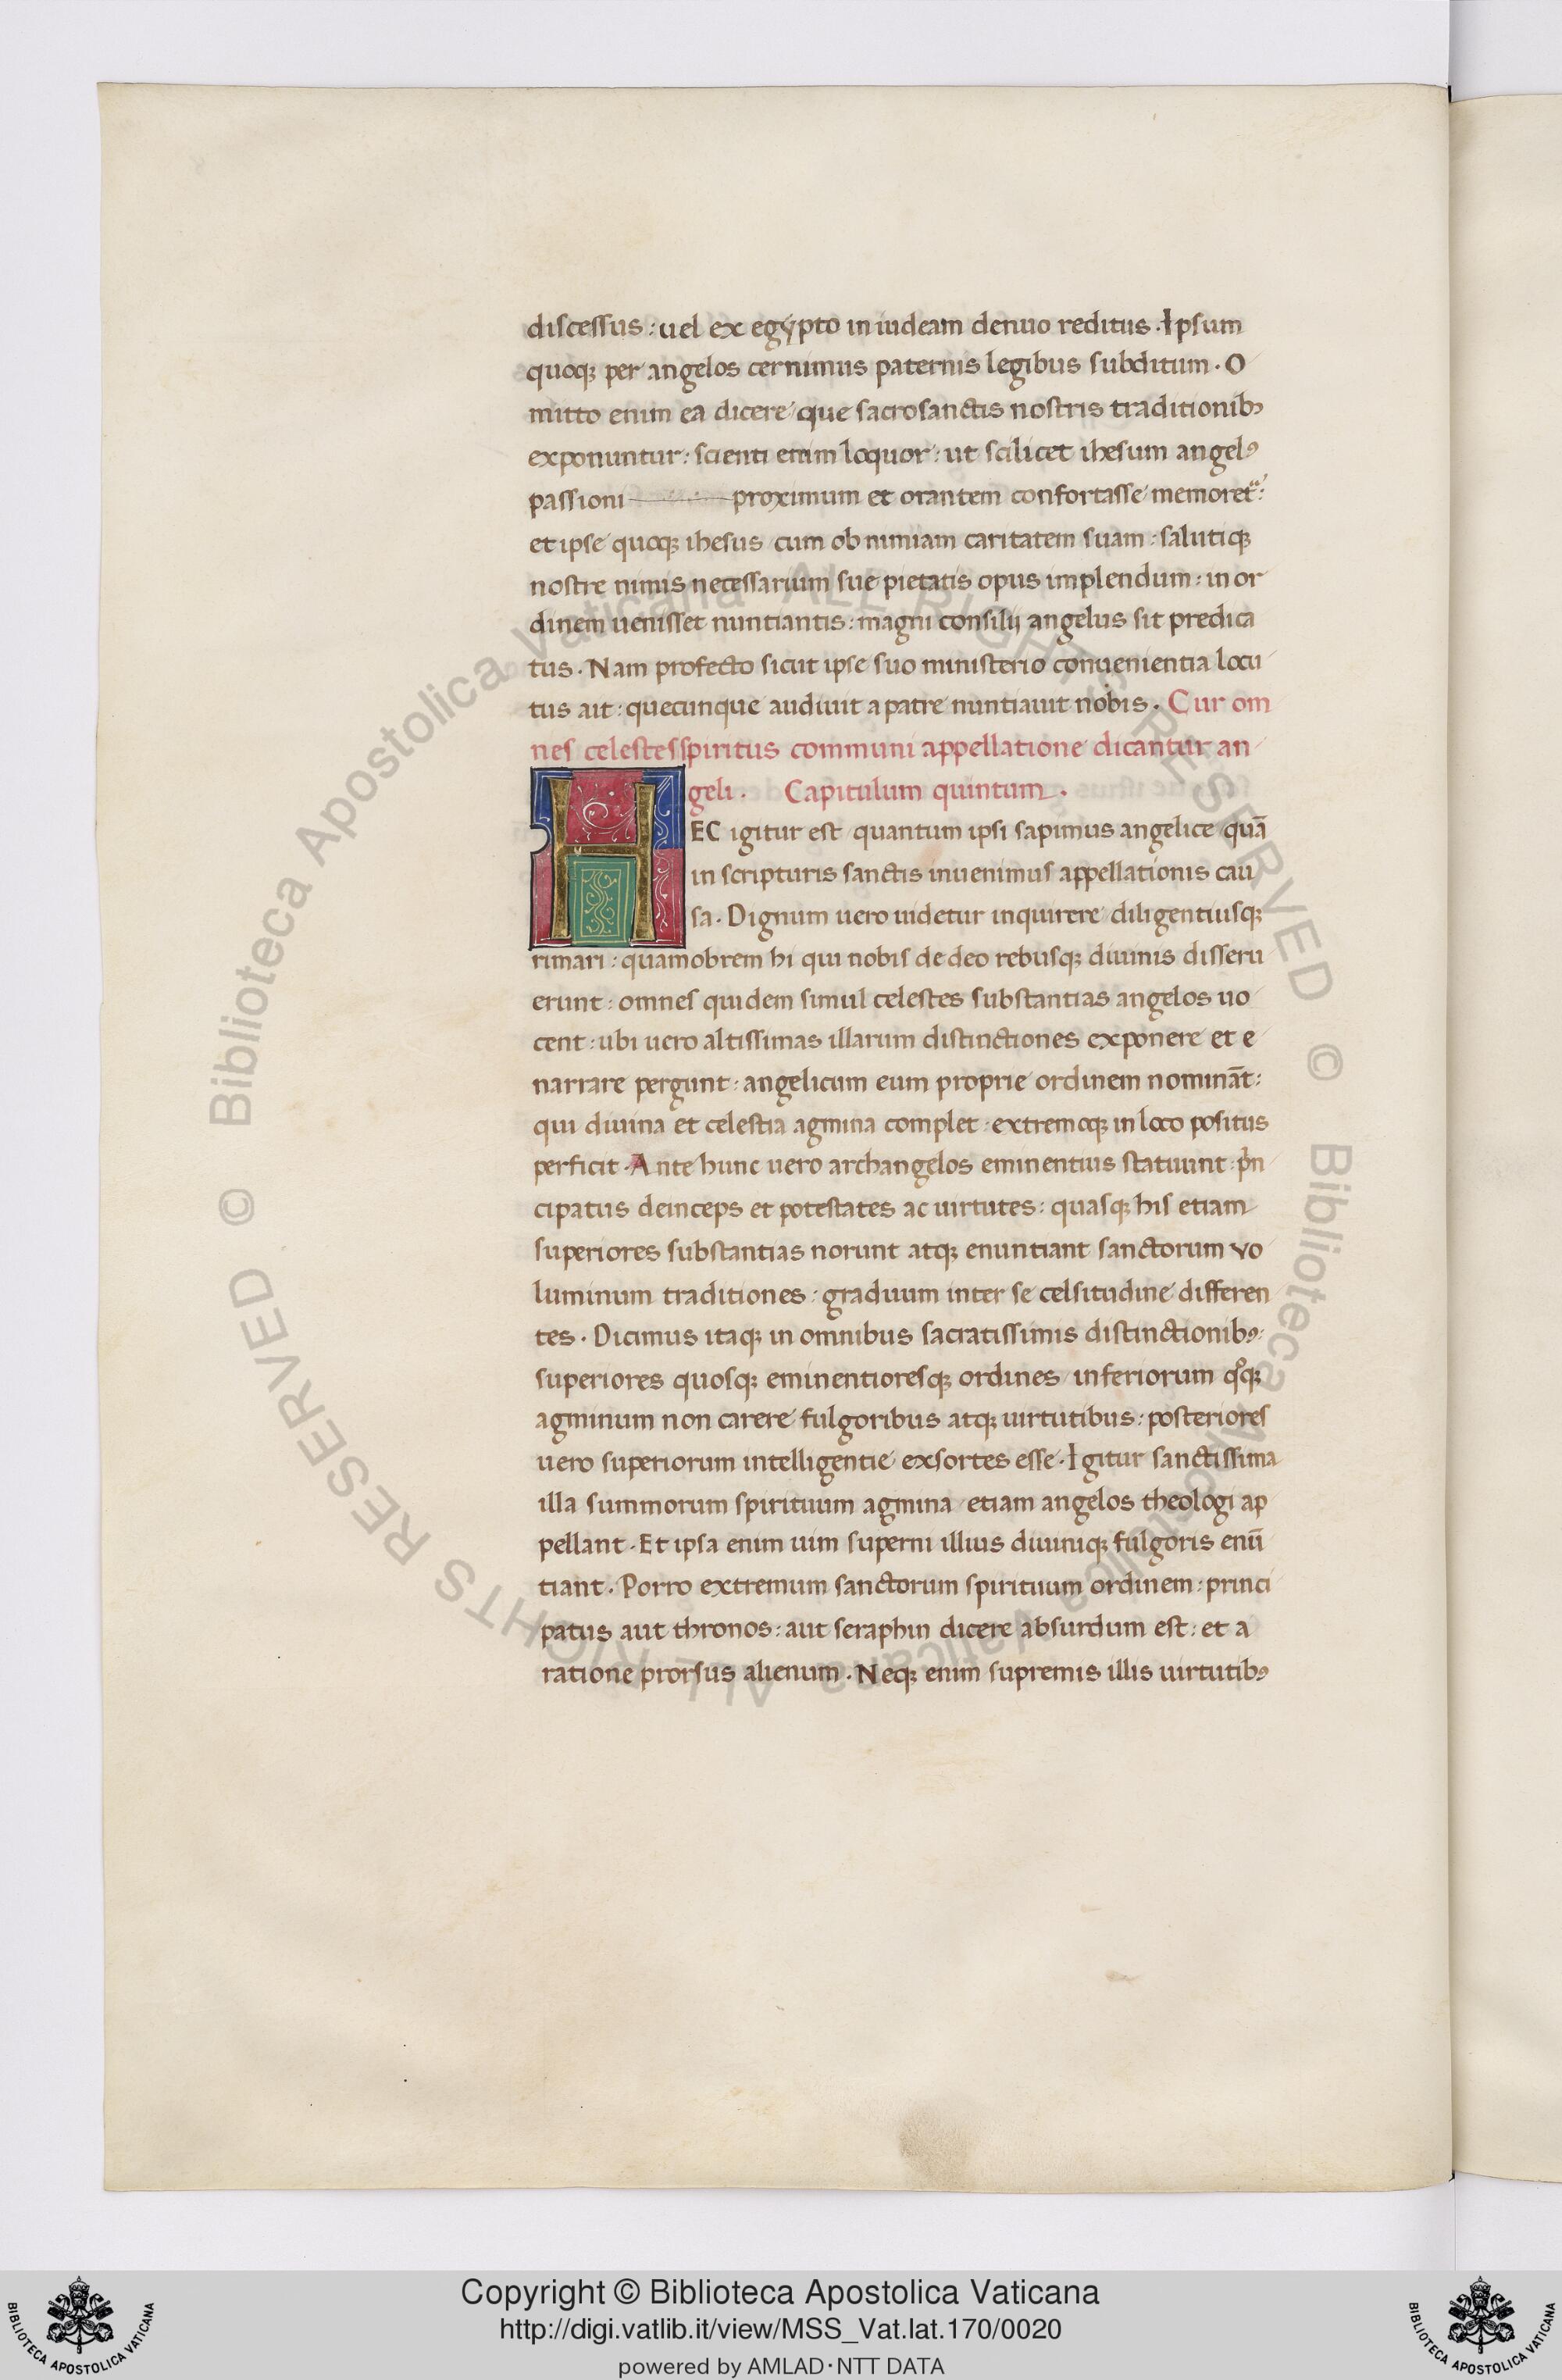 discessus : uel ex egypto in iudeam denuo reditus . Ipsum
quoqꝫ per angelos cernimus paternis legibus subditum . O
mitto enim ea dicere que sacrosanctis nostris traditionibꝰ
exponuntur : scienti enim loquor : ut scilicet ihesum angelꝰ
passioni proximum et orantem confortasse memoret᷑ :
et ipse quoqꝫ ihesus cum ob nimiam caritatem suam : salutiqꝫ
nostre nimis necessarium sue pietatis opus implendum : in or
dinem uenisset nuntiantis : magni consilij angelus sit predica
tus . Nam profecto sicut ipse suo ministerio conuenientia locu
tus ait : quecunque audiuit a patre nuntiauit nobis . Cur om
nes celestes spiritus communi appellatione dicantur an
geli . Capitulum quintum .
HEC igitur est quantum ipsi sapimus angelice quā
in scripturis sanctis inuenimus appellationis cau
sa . Dignum uero uidetur inquirere diligentiusqꝫ
rimari : quamobrem hi qui nobis de deo rebusqꝫ diuinis disseru
erunt : omnes quidem simul celestes substantias angelos uo
cent : ubi uero altissimas illarum distinctiones exponere et e
narrare pergunt : angelicum eum proprie ordinem nomināt :
qui diuina et celestia agmina complet : extremoqꝫ in loco positus
perficit . Ante hunc uero archangelos eminentius statuunt : pͥn
cipatus deinceps et potestates ac uirtutes : quasqꝫ his etiam
superiores substantias norunt atqꝫ enuntiant sanctorum vo
luminum traditiones : graduum inter se celsitudine differen
tes . Dicimus itaqꝫ in omnibus sacratissimis distinctionibꝰ :
superiores quosqꝫ eminentioresqꝫ ordines inferiorum qͦqꝫ
agminum non carere fulgoribus atqꝫ uirtutibus : posteriores
uero superiorum intelligentie exsortes esse . Igitur sanctissima
illa summorum spirituum agmina etiam angelos theologi ap
pellant . Et ipsa enim uim superni illius diuiniqꝫ fulgoris enū
tiant . Porro extremum sanctorum spirituum ordinem : princi
patus aut thronos : aut seraphin dicere absurdum est : et a
ratione prorsus alienum . Neqꝫ enim supremis illis uirtutibꝰ
© Biblioteca Apostolica Vaticana ALL RIGHTS RESERVED
© Biblioteca Apostolica Vaticana ALL RIGHTS RESERVED
Copyright © Biblioteca Apostolica Vaticana
http://digi.vatlib.it/view/MSS_Vat.lat.170/0020
powered by AMLAD·NTT DATA
BIBLIOTECA APOSTOLICA VATICANA
BIBLIOTECA APOSTOLICA VATICANA